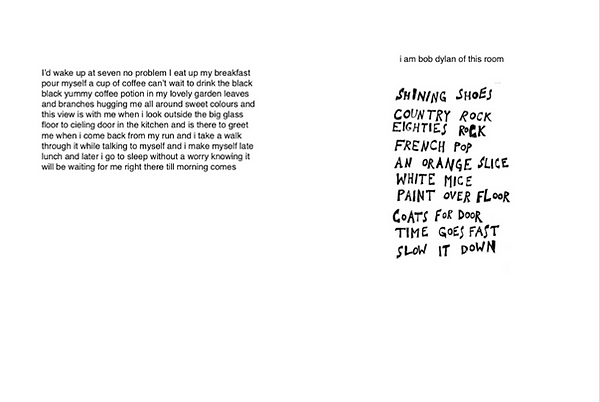 I'd wake up at seven no problem I eat up my breakfast
pour myself a cup of coffee can't wait to drink the black
black yummy coffee potion in my lovely garden leaves
and branches hugging me all around sweet colours and
this view is with me when i look outside the big glass
floor to cieling door in the kitchen and is there to greet
me when i come back from my run and i take a walk
through it while talking to myself and i make myself late
lunch and later i go to sleep without a worry knowing it
will be waiting for me right there till morning comes
i am bob dylan of this room
SHINING SHOES
COUNTRY ROCK
EIGHTIES ROCK
FRENCH POP
AN ORANGE SLICE
WHITE MICE
PAINT OVER FLOOR
COATS FOR DOOR
TIME GOES FAST
SLOW IT DOWN